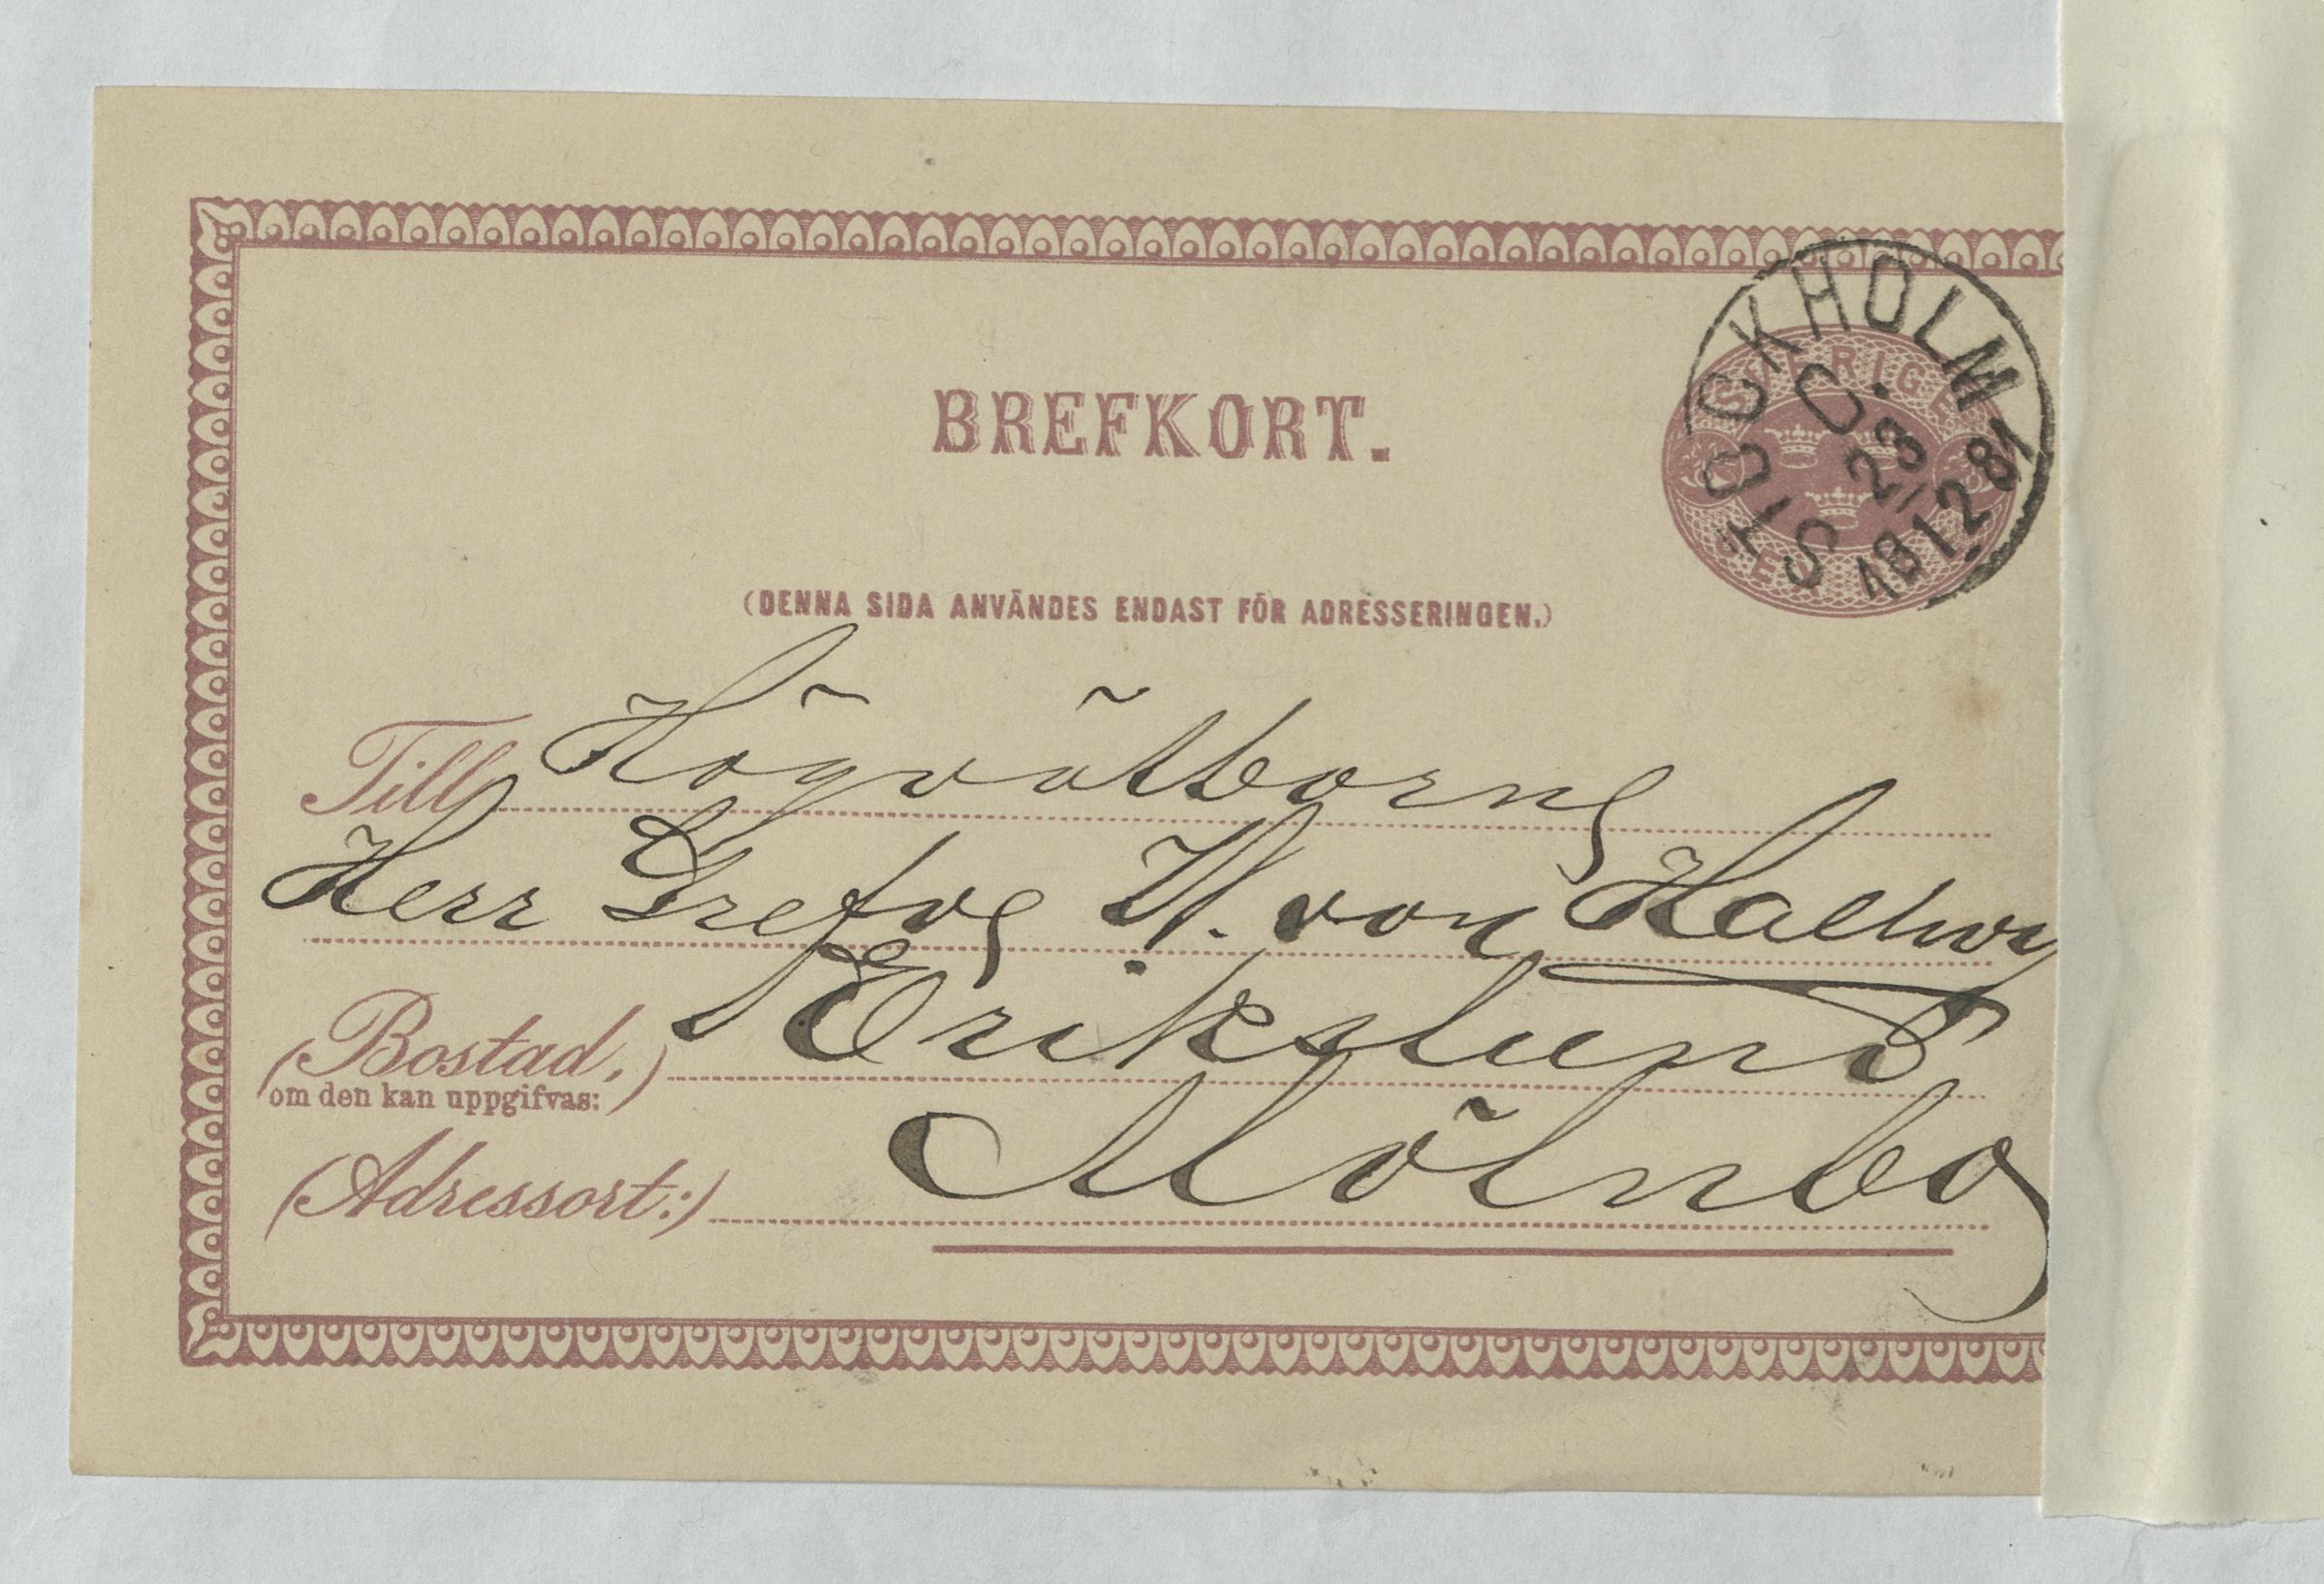 BREFKORT.
STOCKHOLM
C.
23
12 81
SVERIGE
(DENNA SIDA ANVÄNDES ENDAST FÖR ADRESSERINGEN.)
Till Högvälborne
Herr Grefve W. von Hallwy
(Bostad,) Erikslund
om den kan uppgifvas:
(Adressort:) Mölnbo